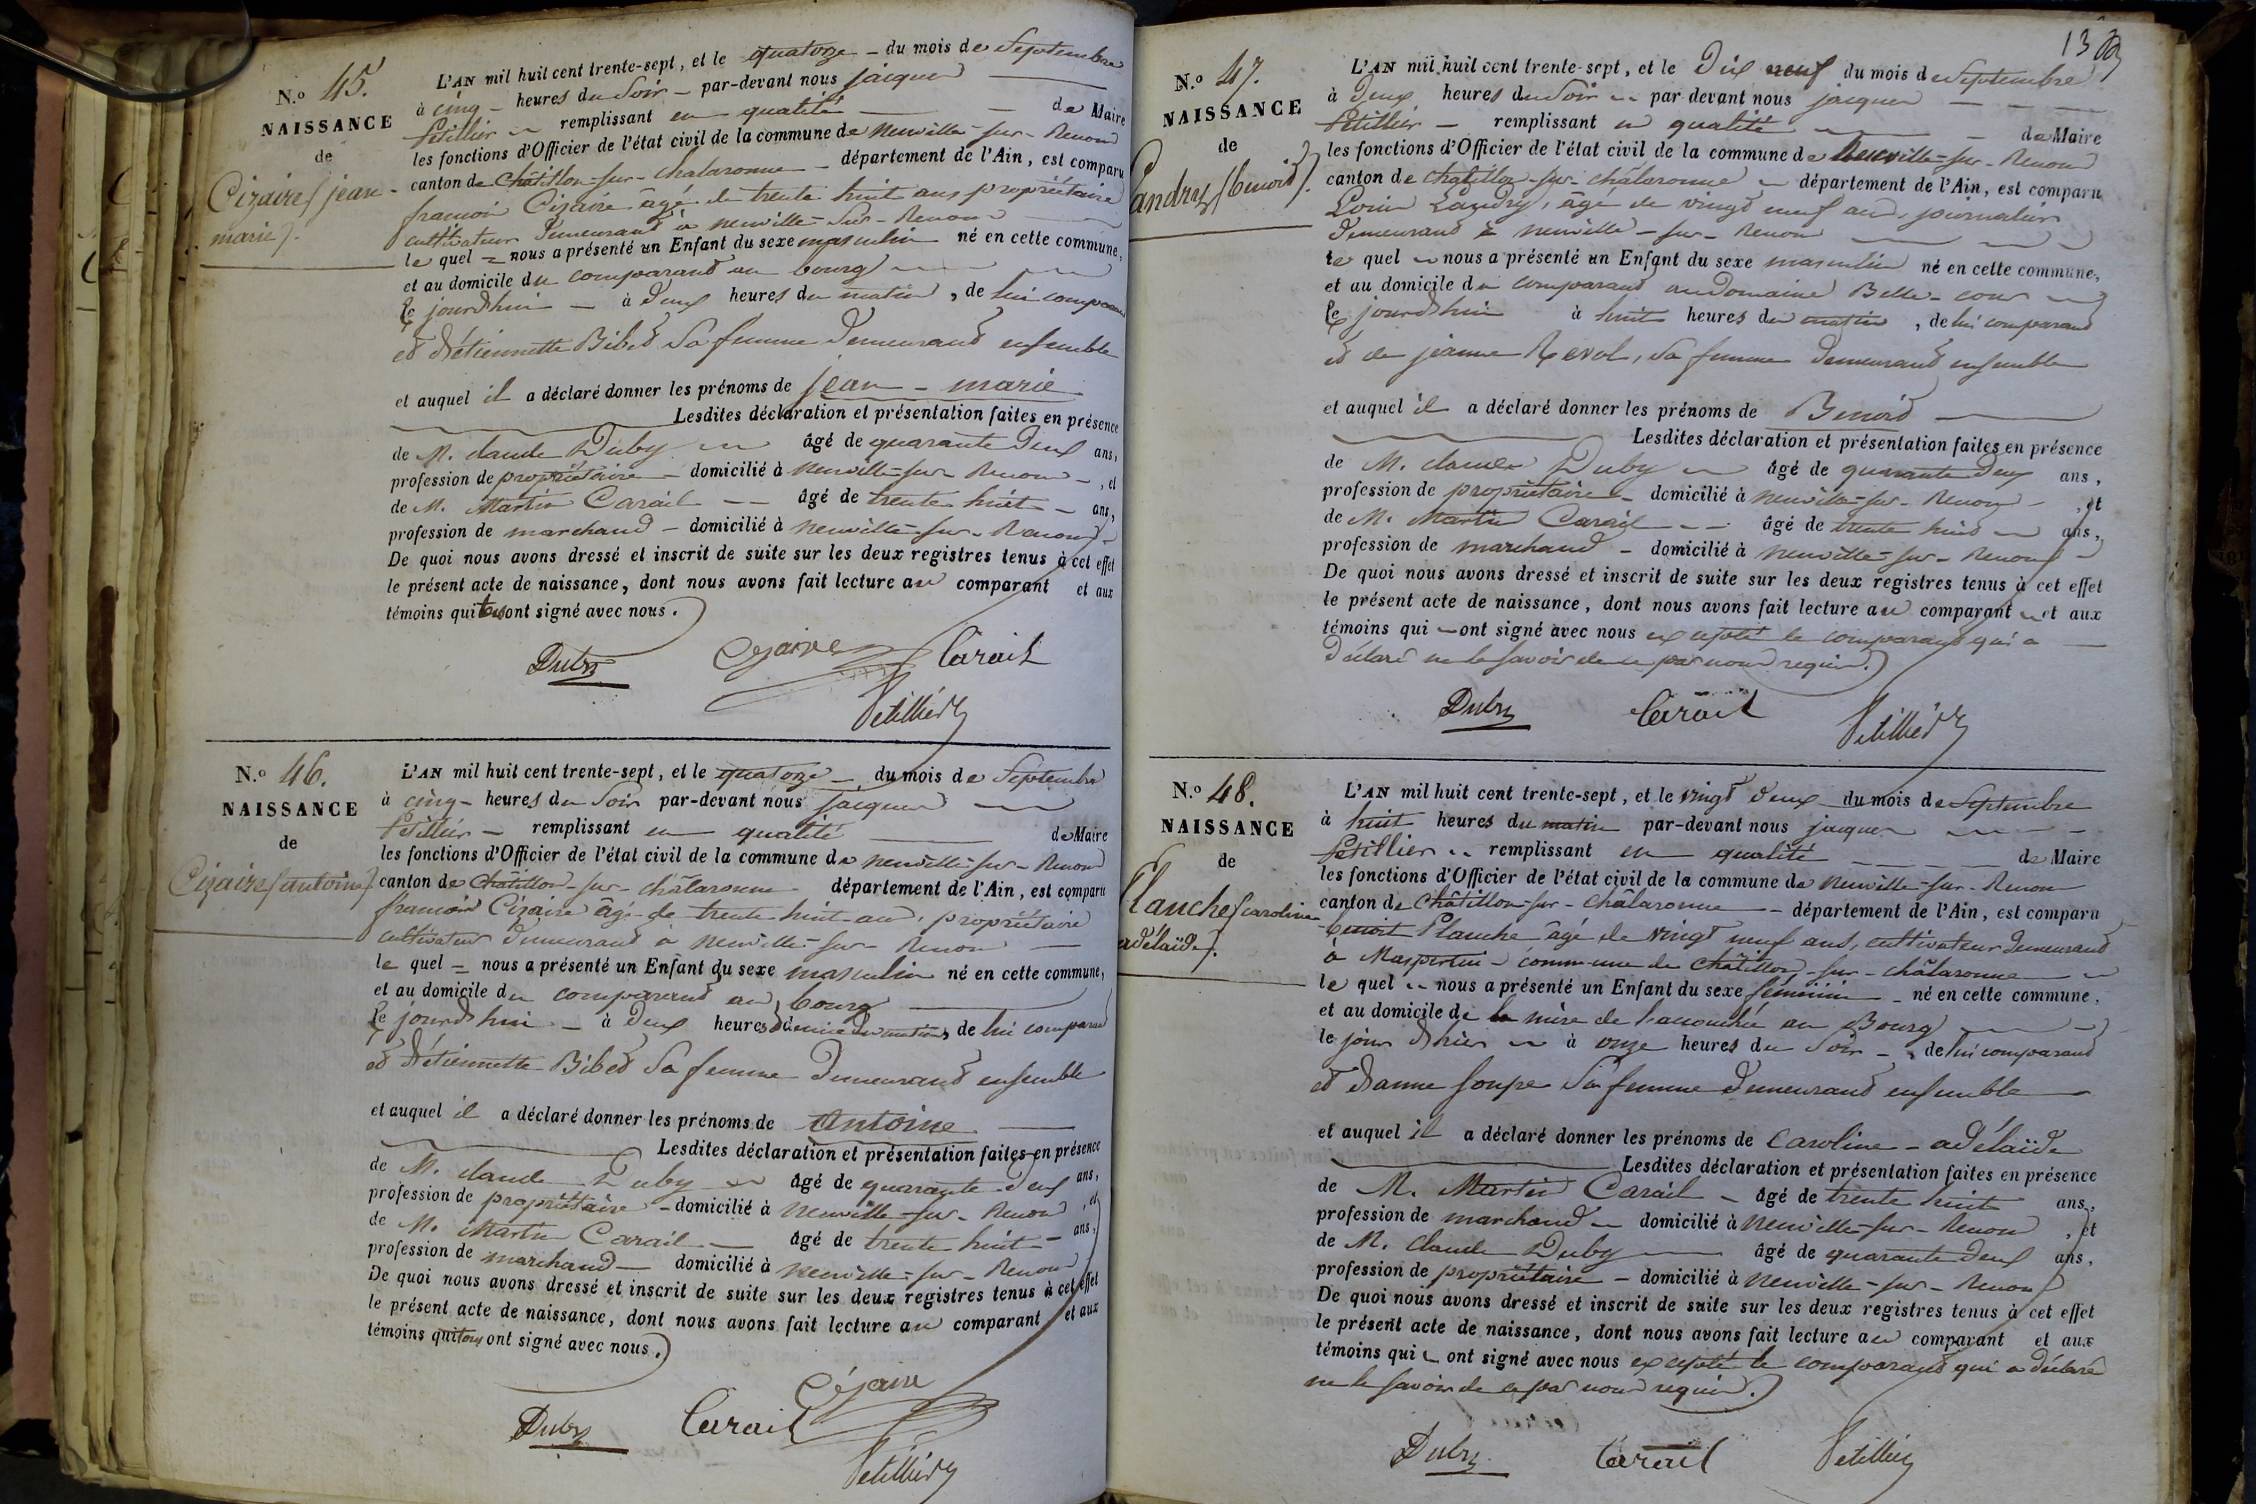 N.º 45.
NAISSANCE
de
Cizaire (jean-
marie).
L'AN mil huit cent trente-sept, et le quatorze du mois de Septembre
à cinq heures du Soir par-devant nous jacques
Petillier remplissant en qualité de Maire
les fonctions d'Officier de l'état civil de la commune de Neuville-sur-Renom
canton de Châtillon-sur-Chalaronne département de l'Ain, est comparu
francois Cizaire âgé de trente huit ans propriétaire
cultivateur demeurant à neuville-sur-Renom
le quel nous a présenté un Enfant du sexe masculin né en cette commune,
et au domicile du comparant au bourg
le jourd'hui à deux heures du matin, de lui comparant
et d'étiennette Bibet Sa femme demeurant ensemble
et auquel il a déclaré donner les prénoms de jean-marie
Lesdites déclaration et présentation faites en présence
de M. claude Duby âgé de quarante deux ans,
profession de propriétaire domicilié à neuville-sur-Renom, et
de M. Martin Carail âgé de trente huit ans,
profession de marchand domicilié à neuville-sur-Renom
De quoi nous avons dressé et inscrit de suite sur les deux registres tenus à cet effet
le présent acte de naissance, dont nous avons fait lecture au comparant et aux
témoins qui tous ont signé avec nous.
Duby Cizaire Carail
Petillier
N.º 46.
NAISSANCE
de
Cizaire (antoine).
L'AN mil huit cent trente-sept, et le quatorze du mois de Septembre
à cinq heures du Soir par-devant nous jacques
Petillier remplissant en qualité de Maire
les fonctions d'Officier de l'état civil de la commune de neuville-sur-Renom
canton de Châtillon-sur-châlaronne département de l'Ain, est comparu
francois Cizaire âgé de trente-huit ans, propriétaire
cultivateur demeurant à neuville-sur-Renom
le quel nous a présenté un Enfant du sexe masculin né en cette commune,
et au domicile du comparant au bourg
le jourd'hui à deux heures & demie du matin, de lui comparant
et d'étiennette Bibet Sa femme demeurant ensemble
et auquel il a déclaré donner les prénoms de Antoine
Lesdites déclaration et présentation faites en présence
de M. claude Duby âgé de quarante deux ans,
profession de propriétaire domicilié à neuville-sur-Renom, et
de M. Martin Carail âgé de trente huit ans,
profession de marchand domicilié à neuville-sur-Renom
De quoi nous avons dressé et inscrit de suite sur les deux registres tenus à cet effet
le présent acte de naissance, dont nous avons fait lecture au comparant et aux
témoins qui tous ont signé avec nous.
Cézaire
Duby Carail
Petillier
13
N.º 47.
NAISSANCE
de
Landry (benoid).
L'AN mil huit cent trente-sept, et le Dix neuf du mois de Septembre
à Deux heures du Soir par devant nous jacques
Petillier remplissant en qualité de Maire
les fonctions d'Officier de l'état civil de la commune de Neuville-sur-Renom
canton de châtillon-sur-châlaronne département de l'Ain, est comparu
Louis Landry, âgé de vingt neuf ans, journalier
demeurant à neuville-sur-Renom
le quel nous a présenté un Enfant du sexe masculin né en cette commune,
et au domicile du comparant au Domaine Belle-cour
le jourd'hui à huit heures du matin, de lui comparant
et de jeanne Revol, Sa femme demeurant ensemble
et auquel il a déclaré donner les prénoms de Benoid
Lesdites déclaration et présentation faites en présence
de M. claude Duby âgé de quarante deux ans,
profession de propriétaire domicilié à neuville-sur-Renom, et
de M. Martin Carail âgé de trente huit ans,
profession de marchand domicilié à neuville-sur-Renom
De quoi nous avons dressé et inscrit de suite sur les deux registres tenus à cet effet
le présent acte de naissance, dont nous avons fait lecture au comparant et aux
témoins qui ont signé avec nous excepté le comparant qui a
déclaré ne le savoir de ce par nous requis.
Duby Carail Petillier
N.º 48.
NAISSANCE
de
Planche (caroline-
adélaïde).
L'AN mil huit cent trente-sept, et le vingt deux du mois de Septembre
à huit heures du matin par-devant nous jacques
Petillier remplissant en qualité de Maire
les fonctions d'Officier de l'état civil de la commune de neuville-sur-Renom
canton de Châtillon-sur-châlaronne département de l'Ain, est comparu
benoit Planche âgé de vingt neuf ans, cultivateur demeurant
à commune de Châtillon-sur-châlaronne
le quel nous a présenté un Enfant du sexe féminin né en cette commune,
et au domicile de la mère de l'accouchée au Bourg
le jour d'hier à onze heures du Soir, de lui comparant
et d'anne Soupe Sa femme demeurant ensemble
et auquel il a déclaré donner les prénoms de caroline-adélaïde
Lesdites déclaration et présentation faites en présence
de M. Martin Carail âgé de trente huit ans,
profession de marchand domicilié à neuville-sur-Renom, et
de M. claude Duby âgé de quarante deux ans,
profession de propriétaire domicilié à neuville-sur-Renom
De quoi nous avons dressé et inscrit de suite sur les deux registres tenus à cet effet
le présent acte de naissance, dont nous avons fait lecture au comparant et aux
témoins qui ont signé avec nous excepté le comparant qui a déclaré
ne le savoir de ce par nous requis.
Duby Carail Petillier